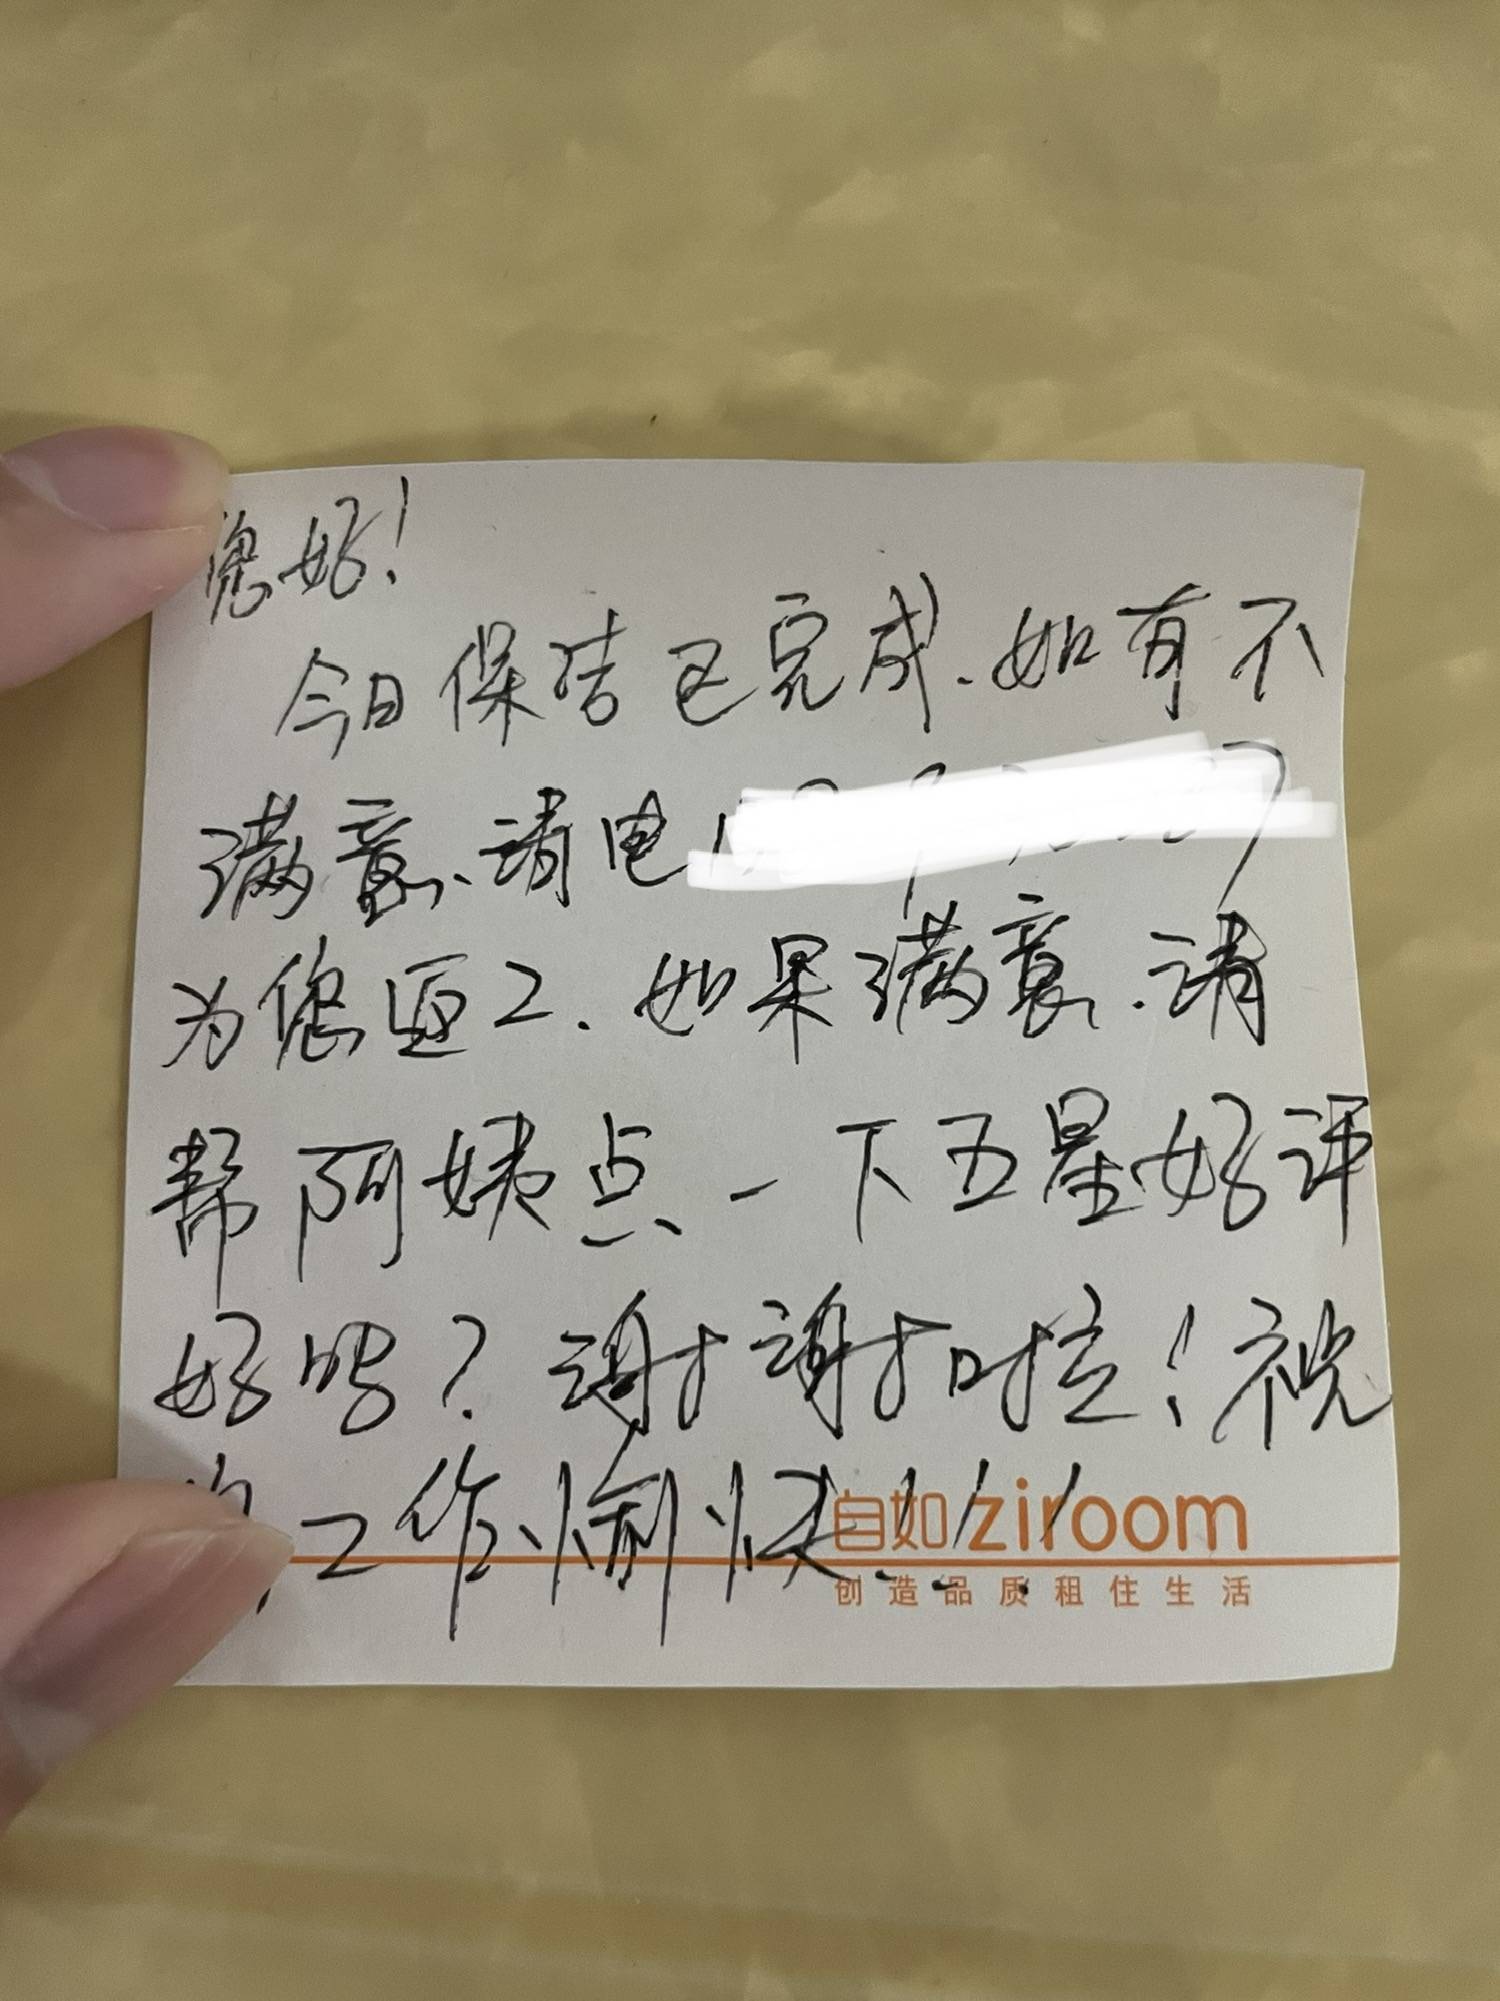 您好！
今日保洁已完成、如有不
满意、请电
为您返工、如果满意、请
帮阿姨点一下五星好评
好吗？谢谢啦！祝
您工作愉快！！！
自如 ziroom
创造品质租住生活